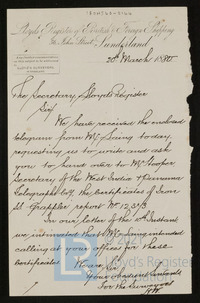 Lloyd's Register of British & Foreign Shipping
St. John Street, Sunderland
20th March 1880
The Secretary Lloyds Register
Sir
We have received the enclosed
telegram from Mr Laing today
requesting us to write and ask
you to hand over to Mr Hooper
Secretary of the West India & Panama
Telegraph Coy, the Certificates of Iron
St. Grappler report No 12,373
In our letter of the Instant
we intimated that Mr Laing intended
calling at your offices for these
Certificates
Your obedient servants
For the Surveyors
© 2020
Lloyd's Register